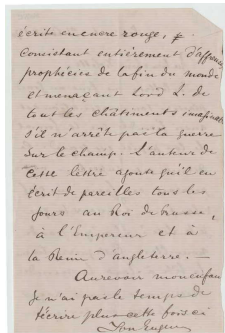 écrits en encre rouge, &
consistant entièrement d'affreuses
prophécies de la fin du monde
et menaçant Lord L. de
tout les châtiments imaginables
s'il n'arrête pas la guerre
sur le champ. L'auteur de
cette lettre ajoute qu'il en
écrit de pareilles tous les
jours au Roi de Prusse,
à l'Empereur et à
la Reine d'Angleterre. —
Au revoir mon enfant
je n'ai pas le temps de
t'écrire plus cette fois ci